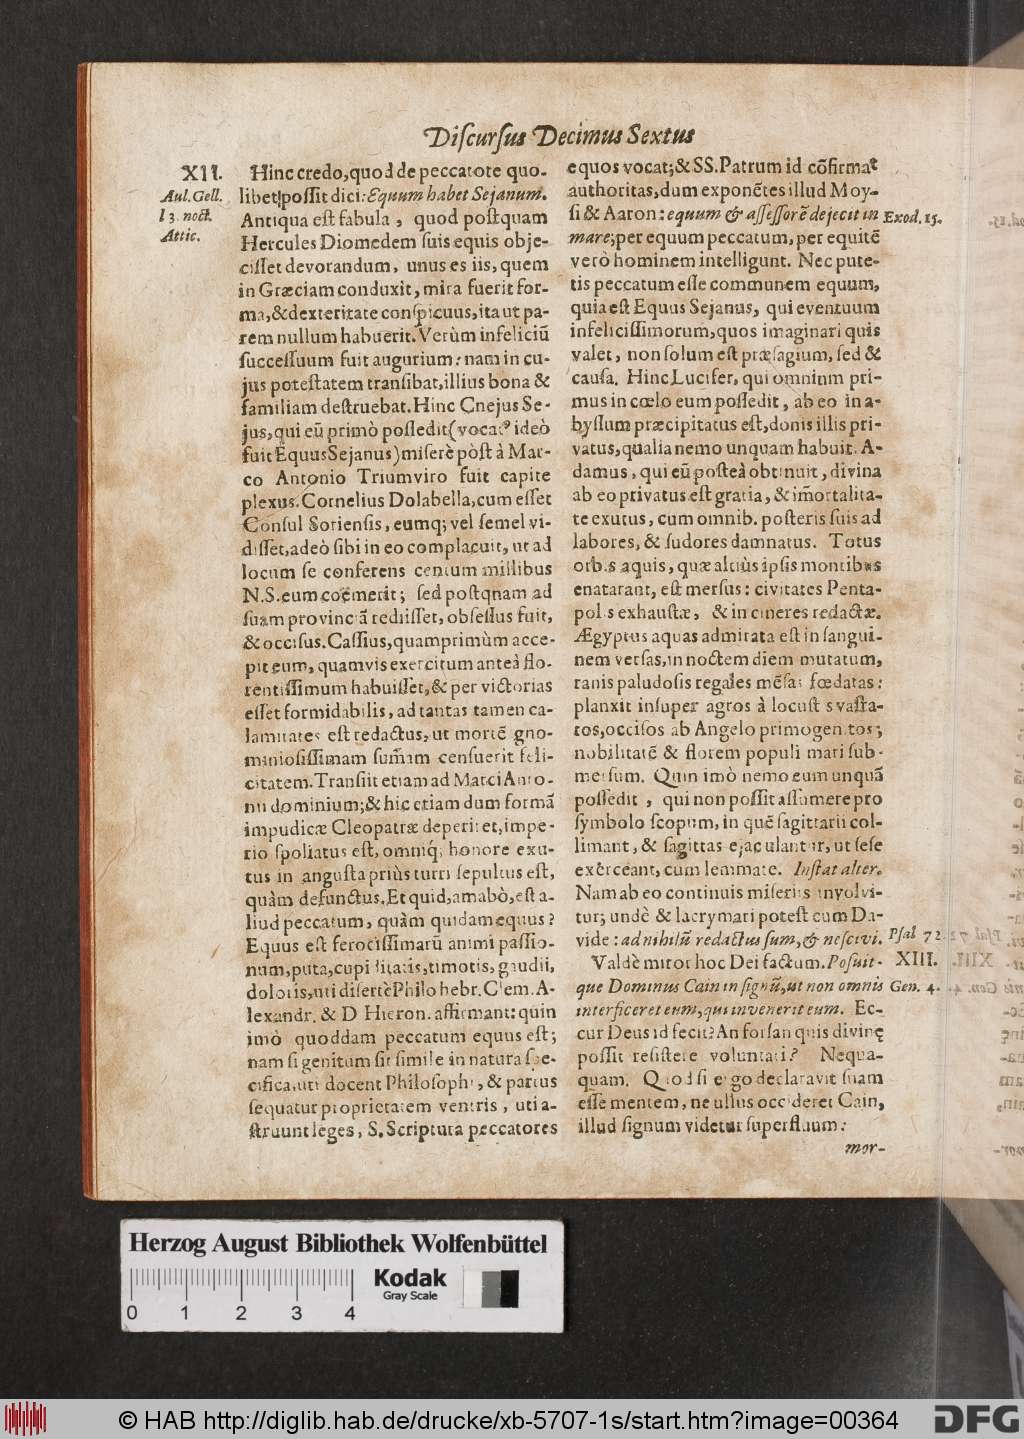 Diſcurſus Decimus Sextus
XII.
Aul. Gell.
l 3. noct.
Attic.
Hinc credo, quod de peccatote quo-
libet poſſit dici: Equum habet Sejanum.
Antiqua eſt fabula, quod poſtquam
Hercules Diomedem ſuis equis obje-
ciſſet devorandum, unus es iis, quem
in Græciam conduxit, mira fuerit for-
ma, & dexteritate conſpicuus, ita ut pa-
rem nullum habuerit. Verùm infeliciũ
ſucceſſuum fuit augurium: nam in cu-
jus poteſtatem tranſibat, illius bona &
familiam deſtruebat. Hinc Cnejus Se-
jus, qui eũ primò poſſedit (vocaꝰ ideò
fuit Equus Sejanus) miſerè pòſt à Mar-
co Antonio Triumviro fuit capite
plexus. Cornelius Dolabella, cum eſſet
Conſul Sorienſis, eumq; vel ſemel vi-
diſſet, adeò ſibi in eo complacuit, ut ad
locum ſe conferens centum millibus
N.S. eum coëmerit; ſed poſtqnam ad
ſuam provinciã rediiſſet, obſeſſus fuit,
& occiſus. Caſſius, quamprimùm acce-
pit eum, quamvis exercitum anteà flo-
rentiſſimum habuiſſet, & per victorias
eſſet formidabilis, ad tantas tamen ca-
lamitates eſt redactus, ut mortẽ gno-
minioſiſſimam ſum̃am cenſuerit feli-
citatem. Tranſiit etiam ad Marci Anto-
nii dominium; & hic etiam dum formã
impudicæ Cleopatræ deperiret, impe-
rio ſpoliatus eſt, omniq́; honore exu-
tus in anguſta priùs turri ſepultus eſt,
quàm defunctus. Et quid, amabò, eſt a-
liud peccatum, quàm quidam equus?
Equus eſt ferociſſimarũ animi paſſio-
num, puta, cupiditatis, timotis, gaudii,
doloris, uti diſertè Philo hebr. Clem. A-
lexandr. & D Hieron. affirmant: quin
imò quoddam peccatum equus eſt;
nam ſi genitum ſit ſimile in natura ſpe-
cifica, uti docent Philoſophi, & partus
ſequatur proprietatem ventris, uti a-
ſtruunt leges, S. Scriptura peccatores
equos vocat; & SS. Patrum id cõfirmat
authoritas, dum exponẽtes illud Moy-
ſi & Aaron: equum & aſſeſſorẽ dejecit in
Exod. 15.
mare; per equum peccatum, per equitẽ
verò hominem intelligunt. Nec pute-
tis peccatum eſſe communem equum,
quia eſt Equus Sejanus, qui eventuum
infeliciſſimorum, quos imaginari quis
valet, non ſolum eſt præſagium, ſed &
cauſa. Hinc Lucifer, qui omnium pri-
mus in cœlo eum poſſedit, ab eo in a-
byſſum præcipitatus eſt, donis illis pri-
vatus, qualia nemo unquam habuit. A-
damus, qui eũ poſteà obtinuit, divina
ab eo privatus eſt gratia, & im̃ortalita-
te exutus, cum omnib. poſteris ſuis ad
labores, & ſudores damnatus. Totus
orbis aquis, quæ altiùs ipſis montibus
enatarant, eſt merſus: civitates Penta-
polis exhauſtæ, & in cineres redactæ.
Ægyptus aquas admirata eſt in ſangui-
nem verſas, in noctem diem mutatum,
ranis paludoſis regales mẽſas fœdatas:
planxit inſuper agros à locuſtis vaſta-
tos, occiſos ab Angelo primogenitos;
nobilitatẽ & florem populi mari ſub-
merſum. Quin imò nemo eum unquã
poſſedit, qui non poſſit aſſumere pro
ſymbolo ſcopum, in quẽ ſagittarii col-
limant, & ſagittas ejaculantur, ut ſeſe
exerceant, cum lemmate. Inſtat alter.
Nam ab eo continuis miſeriis involvi-
tur; undè & lacrymari poteſt cum Da-
vide: ad nihilũ redactus ſum, & neſcivi.
Pſal 72.
Valdè miror hoc Dei factum. Poſuit-
XIII.
que Dominus Cain in ſignũ, ut non omnis
Gen. 4.
interficeret eum, qui invenerit eum. Ec-
cur Deus id fecit? An forſan quis divinę
poſſit reſiſtere voluntati? Nequa-
quam. Quod ſi ergo declaravit ſuam
eſſe mentem, ne ullus occideret Cain,
illud ſignum videtur ſuperfluum:
mor-
Herzog August Bibliothek Wolfenbüttel
Kodak
Gray Scale
0 1 2 3 4
© HAB http://diglib.hab.de/drucke/xb-5707-1s/start.htm?image=00364
DFG